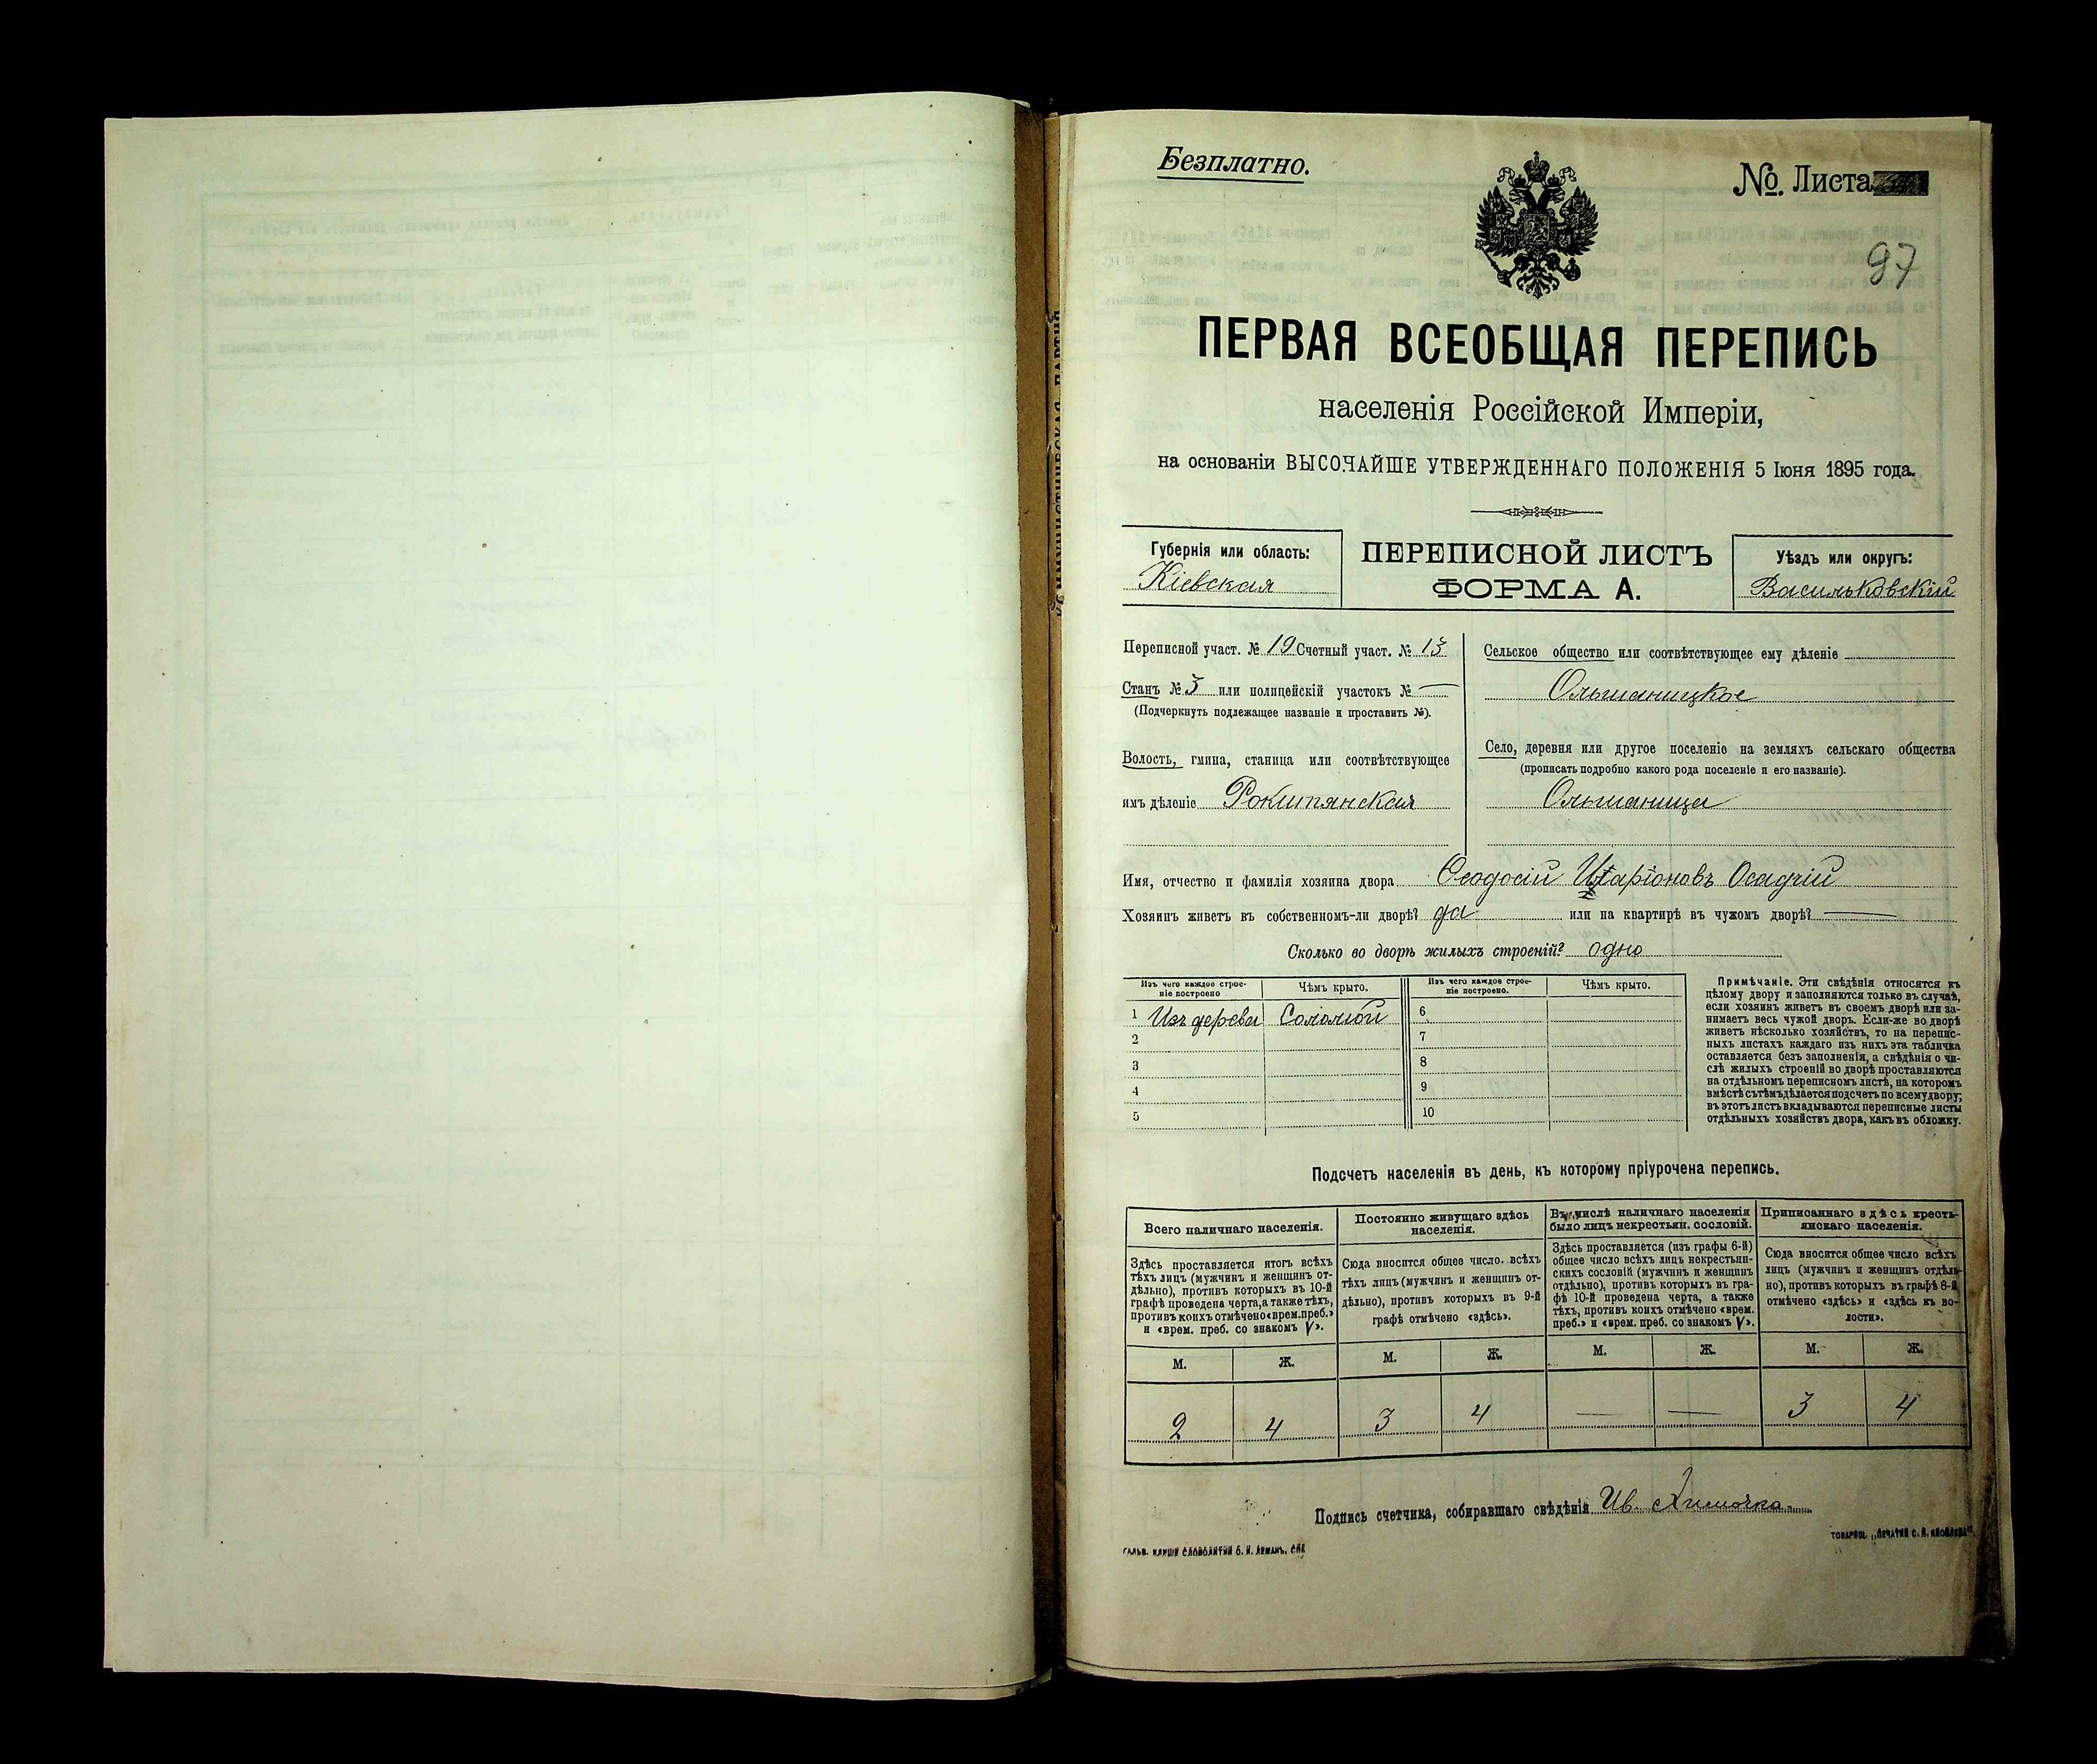 Безплатно.
№. Листа
97
ПЕРВАЯ ВСЕОБЩАЯ ПЕРЕПИСЬ
населенія Россійской Имперіи,
на основаніи ВЫСОЧАЙШЕ УТВЕРЖДЕННАГО ПОЛОЖЕНІЯ 5 Іюня 1895 года.
Губернія или область:
Кіевская
ПЕРЕПИСНОЙ ЛИСТЪ
ФОРМА А.
Уѣздъ или округъ:
Васильковскій
Переписной участ. № 19 Счетный участ. № 13
Станъ № 3 или полицейскій участокъ № —
(Подчеркнуть подлежащее названіе и проставить №).
Волость, гмина, станица или соотвѣтствующее
имъ дѣленіе Рокитянская
Сельское общество или соотвѣтствующее ему дѣленіе
Ольшаницкое
Село, деревня или другое поселеніе на земляхъ сельскаго общества
(прописать подробно какого рода поселеніе и его названіе).
Ольшаница
Имя, отчество и фамилія хозяина двора Ѳеодосій Иларіоновъ Осадчій
Хозяинъ живетъ въ собственномъ-ли дворѣ? да или на квартирѣ въ чужомъ дворѣ? —
Сколько во дворѣ жилыхъ строеній? одно
Изъ чего каждое строе-
ніе построено
Чѣмъ крыто.
Изъ чего каждое строе-
ніе построено.
Чѣмъ крыто.
1 Изъ дерева Соломой 6
2 7
3 8
4 9
5 10
Примѣчаніе. Эти свѣдѣнія относятся къ
цѣлому двору и заполняются только въ случаѣ,
если хозяинъ живетъ въ своемъ дворѣ или за-
нимаетъ весь чужой дворъ. Если-же во дворѣ
живетъ нѣсколько хозяйствъ, то на перепис-
ныхъ листахъ каждаго изъ нихъ эта табличка
оставляется безъ заполненія, а свѣдѣнія о чи-
слѣ жилыхъ строеній во дворѣ проставляются
на отдѣльномъ переписномъ листѣ, на которомъ
вмѣстѣ съ тѣмъ дѣлается подсчетъ по всему двору;
въ этотъ листъ вкладываются переписные листы
отдѣльныхъ хозяйствъ двора, какъ въ обложку.
Подсчетъ населенія въ день, къ которому пріурочена перепись.
Всего наличнаго населенія.
Здѣсь проставляется итогъ всѣхъ
тѣхъ лицъ (мужчинъ и женщинъ от-
дѣльно), противъ которыхъ въ 10-й
графѣ проведена черта, а также тѣхъ,
противъ коихъ отмѣчено «врем. преб.»
и «врем. преб. со знакомъ V».
Постоянно живущаго здѣсь
населенія.
Сюда вносится общее число всѣхъ
тѣхъ лицъ (мужчинъ и женщинъ от-
дѣльно), противъ которыхъ въ 9-й
графѣ отмѣчено «здѣсь».
Въ числѣ наличнаго населенія
было лицъ некрестьян. сословій.
Здѣсь проставляется (изъ графы 6-й)
общее число всѣхъ лицъ некрестьян-
скихъ сословій (мужчинъ и женщинъ
отдѣльно), противъ которыхъ въ гра-
фѣ 10-й проведена черта, а также
тѣхъ, противъ коихъ отмѣчено «врем.
преб.» и «врем. преб. со знакомъ V».
Приписаннаго здѣсь кресть-
янскаго населенія.
Сюда вносится общее число всѣхъ
лицъ (мужчинъ и женщинъ отдѣль-
но), противъ которыхъ въ графѣ 8-й
отмѣчено «здѣсь» и «здѣсь къ во-
лости».
М. Ж. М. Ж. М. Ж. М. Ж.
2 4 3 4 — — 3 4
Подпись счетчика, собиравшаго свѣдѣнія Ив.
ГАЛЬВ. КЛИШЕ СЛОВОЛИТНИ О. И. ЛЕМАНЪ, СПБ
ТОВАРИЩ. „ПЕЧАТНЯ С. П. ЯКОВЛЕВА“.